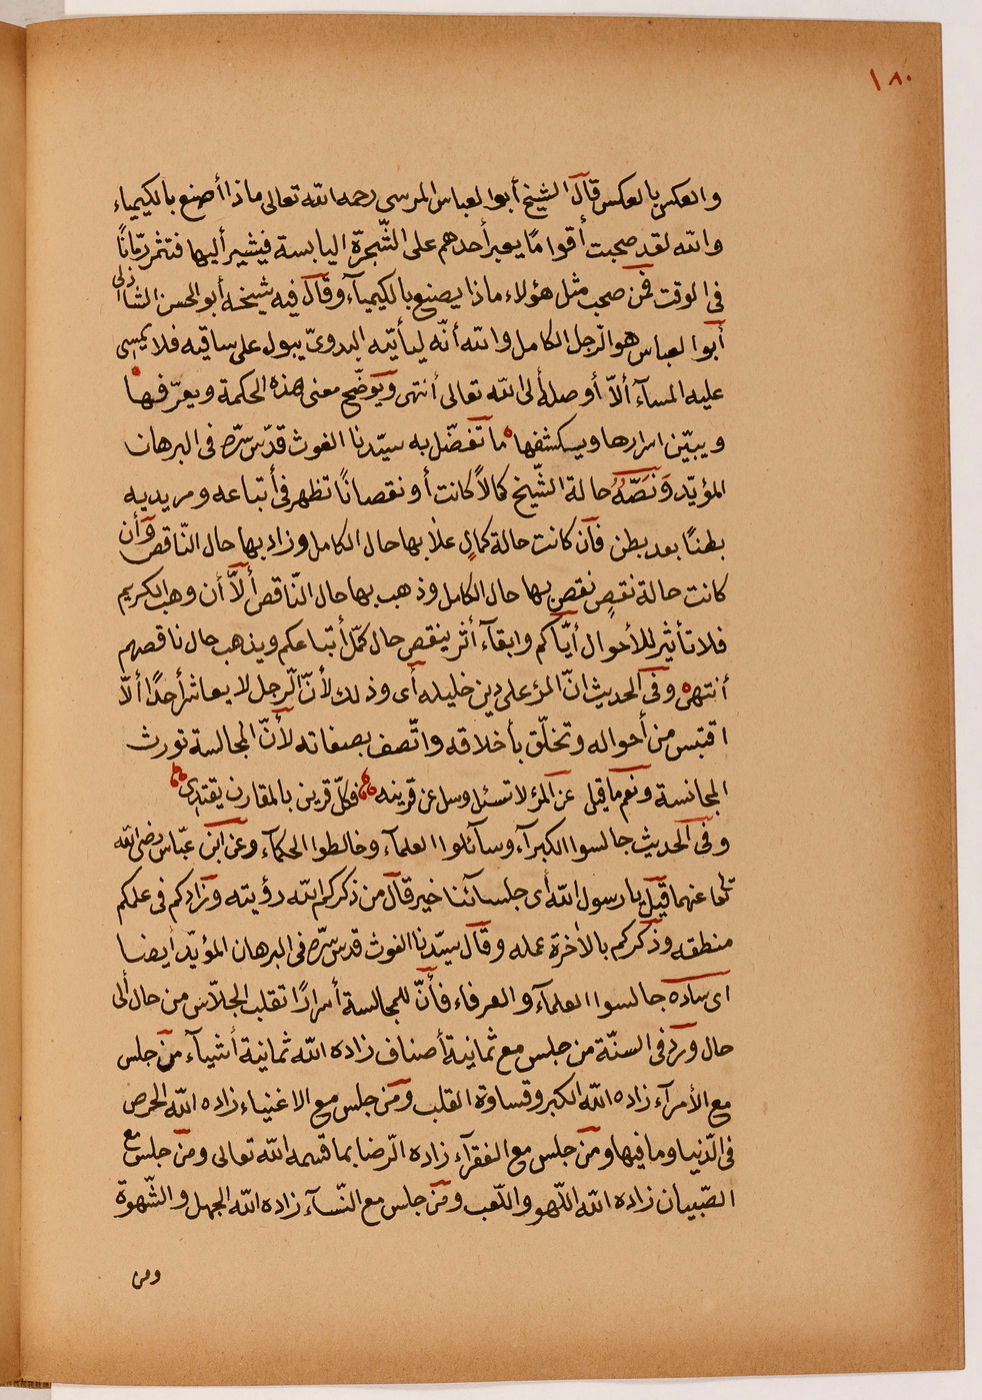 ١٨٠
والعكس بالعكس قال الشيخ أبوا لعباس المرسى رحمه الله تعالى ماذا أصنع بالكيمياء
والله لقد صحبت أقوامًا يعبر أحدهم على الشّجرة اليابسة فيشير أليها فتثمر رمّانًا
فى الوقت فمن صحب مثل هؤلاء ماذا يصنع بالكيميآء وقال فيه شيخه أبو الحسن الشاذلى
أبوا لعباس هو الرّجل الكامل والله أنّه ليأتيه البدوىّ يبول على ساقيه فلا يمسى
عليه المسآء ألاّ أوصله ألى الله تعالى أنتهى ويوضّح معنى هذه الحكمة ويعرّفها
ويبيّن اسرارها ويسكشفها ما تفضّل به سيّدنا الغوث قدّس سرّه فى البرهان
المؤيّد ونصّهُ حالة الشّيخ كمالاً كانت أو نقصانًا تظهر فى أتباعه ومريديه
بطنًا بعد بطن فأن كانت حالة كمالٍ علا بها حال الكامل وزاد بها حال النّاقص وأن
كانت حالة نقصٍ نقص بها حال الكامل وذهب بها حال النّاقص ألاّ أن وهب الكريم
فلا تأثير للأحوال أيّاكم وابقآء أثر ينقص حال كمّل أتباعكم ويذهب حال ناقصهم
أنتهى وفى الحديث انّ المرٔ على دين خليله أى وذلك لأنّ الرّجل لا يعاشر أحدًا ألاّ
اقتبس من أحواله وتخلّق بأخلاقه واتّصف بصفاته لأنّ المجالسة تورث
المجانسة ونعم ما قيل عن المرٔ لا تسئل وسل عن قرينه فكلّ قرين بالمقارن يقتدى
وفى الحديث جالسوا الكبرآء وسآئلوا العلمآء وخالطوا الحكمآء وعن ابن عبّاس رضى الله
تعا عنهما قيل يا رسول الله أى جلسآئنا خير قال من ذكركم الله رؤيته وزادكم فى علمكم
منطقه وذكركم بالأخرة عمله وقال سيّدنا الغوث قدس سرّه فى البرهان المؤيّد أيضا
اى ساده جالسوا العلمآء والعرفاء فأنّ للمجالسة أسرارًا تقلب الجلاّس من حال ألى
حال ورد فى السنّة من جلس مع ثمانية أصناف زاده الله ثمانية أشيآء من جلس
مع الأمرآء زاده الله الكبر وقساوة القلب ومن جلس مع الاغنياء زاده الله الحرص
فى الدّنيا وما فيها ومن جلس مع الفقرآء زاده الرّضا بما قسمه الله تعالى ومن جلس مع
الصّبيان زاده الله اللّهو واللّعب ومن جلس مع النّسآء زاده الله الجهل والشّهوة
ومن